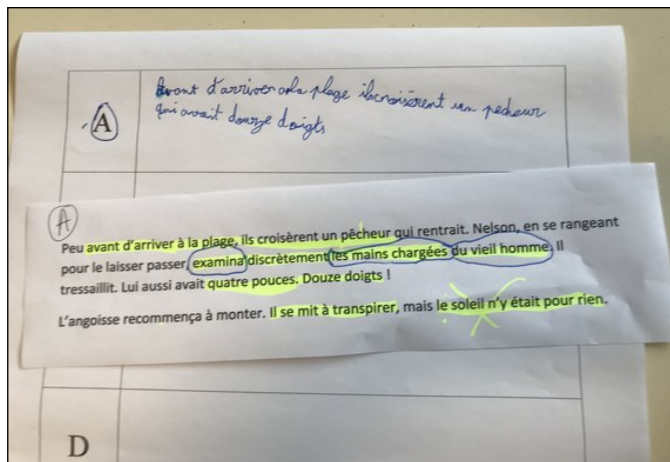 A
avant d'arriver a la plage ils croisèrent un pecheur
qui avait douze doigts
A
Peu avant d'arriver à la plage, ils croisèrent un pêcheur qui rentrait. Nelson, en se rangeant
pour le laisser passer, examina discrètement les mains chargées du vieil homme. Il
tressaillit. Lui aussi avait quatre pouces. Douze doigts !
L'angoisse recommença à monter. Il se mit à transpirer, mais le soleil n'y était pour rien.
D